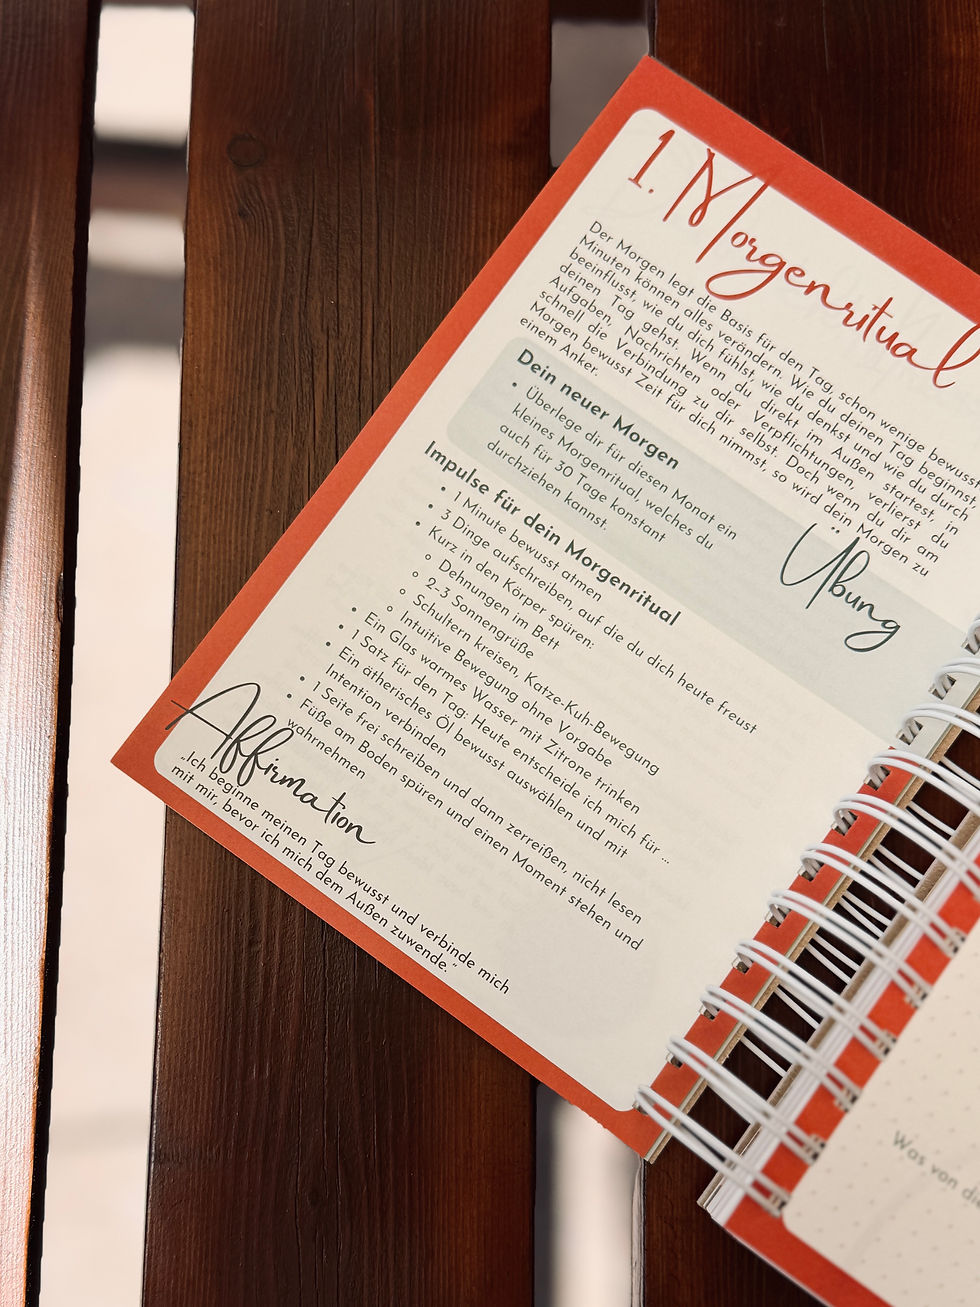 1. Morgenritual
Der Morgen legt die Basis für den Tag, schon wenige bewusste
Minuten können alles verändern. Wie du deinen Tag beginnst,
beeinflusst, wie du dich fühlst, wie du denkst und wie du durch
deinen Tag gehst. Wenn du direkt im Außen startest, in
Aufgaben, Nachrichten oder Verpflichtungen, verlierst du
schnell die Verbindung zu dir selbst. Doch wenn du dir am
Morgen bewusst Zeit für dich nimmst, so wird dein Morgen zu
einem Anker.
Dein neuer Morgen
• Überlege dir für diesen Monat ein
kleines Morgenritual, welches du
auch für 30 Tage konstant
durchziehen kannst.
Übung
Impulse für dein Morgenritual
• 1 Minute bewusst atmen
• 3 Dinge aufschreiben, auf die du dich heute freust
• Kurz in den Körper spüren:
○ Dehnungen im Bett
○ 2-3 Sonnengrüße
○ Schultern kreisen, Katze-Kuh-Bewegung
○ Intuitive Bewegung ohne Vorgabe
• Ein Glas warmes Wasser mit Zitrone trinken
• 1 Satz für den Tag: Heute entscheide ich mich für ...
• Ein ätherisches Öl bewusst auswählen und mit
Intention verbinden
• 1 Seite frei schreiben und dann zerreißen, nicht lesen
• Füße am Boden spüren und einen Moment stehen und
wahrnehmen
Affirmation
„Ich beginne meinen Tag bewusst und verbinde mich
mit mir, bevor ich mich dem Außen zuwende.“
Was von